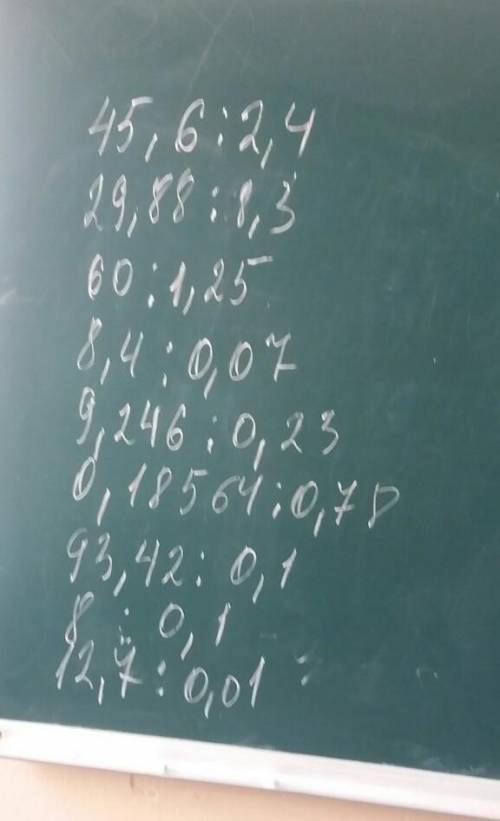 45,6:2,4
29,88:8,3
60:1,25
8,4:0,07
9,246:0,23
0,18564:0,78
93,42:0,1
8:0,1
12,7:0,01